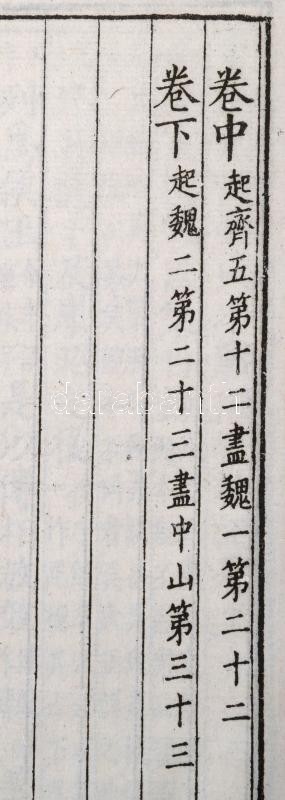 卷中起齊五第十二盡魏一第二十二
卷下起魏二第二十三盡中山第三十三
darabanth